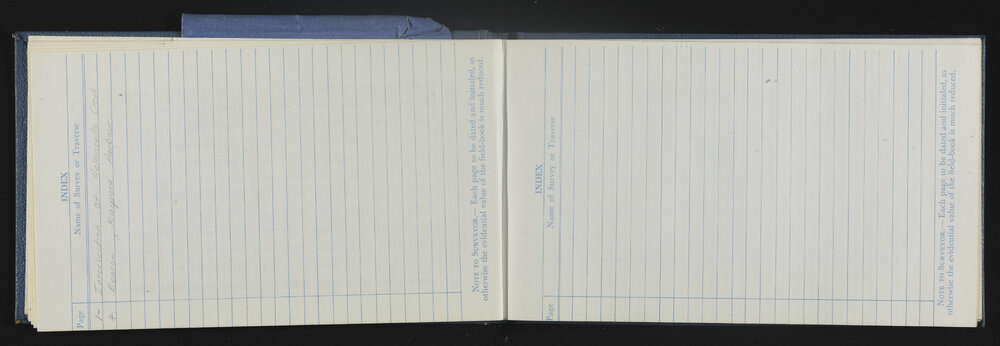 INDEX
Page Name of Survey or Traverse
1- Intersection of
+ Kaipara Harbour
NOTE TO SURVEYOR.— Each page to be dated and initialed, as
otherwise the evidential value of the field-book is much reduced.
INDEX
Page Name of Survey or Traverse
NOTE TO SURVEYOR.— Each page to be dated and initialed, as
otherwise the evidential value of the field-book is much reduced.